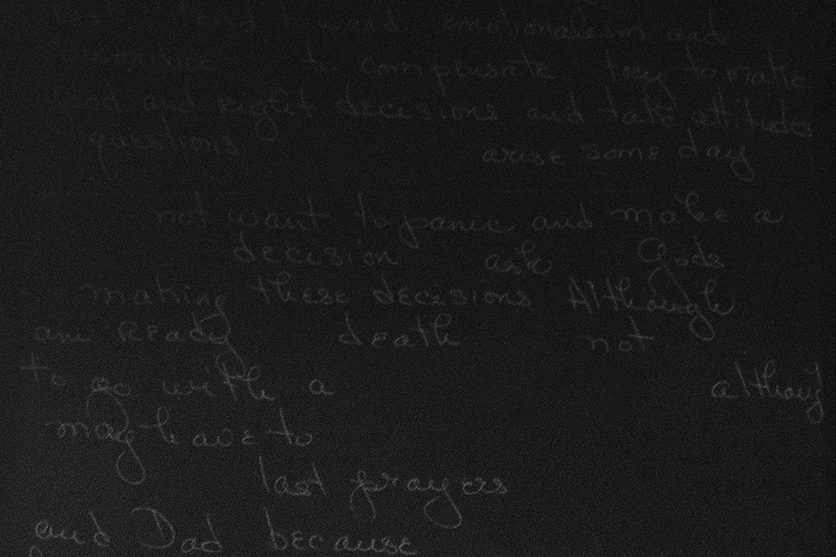 tend toward emotionalism and
to compensate try to make
good and right decisions and take attitudes
questions arise some day
not want to panic and make a
decision ask Gods
making these decisions Although
am Ready death not
to go with a althoug
may have to
last prayers
and Dad because